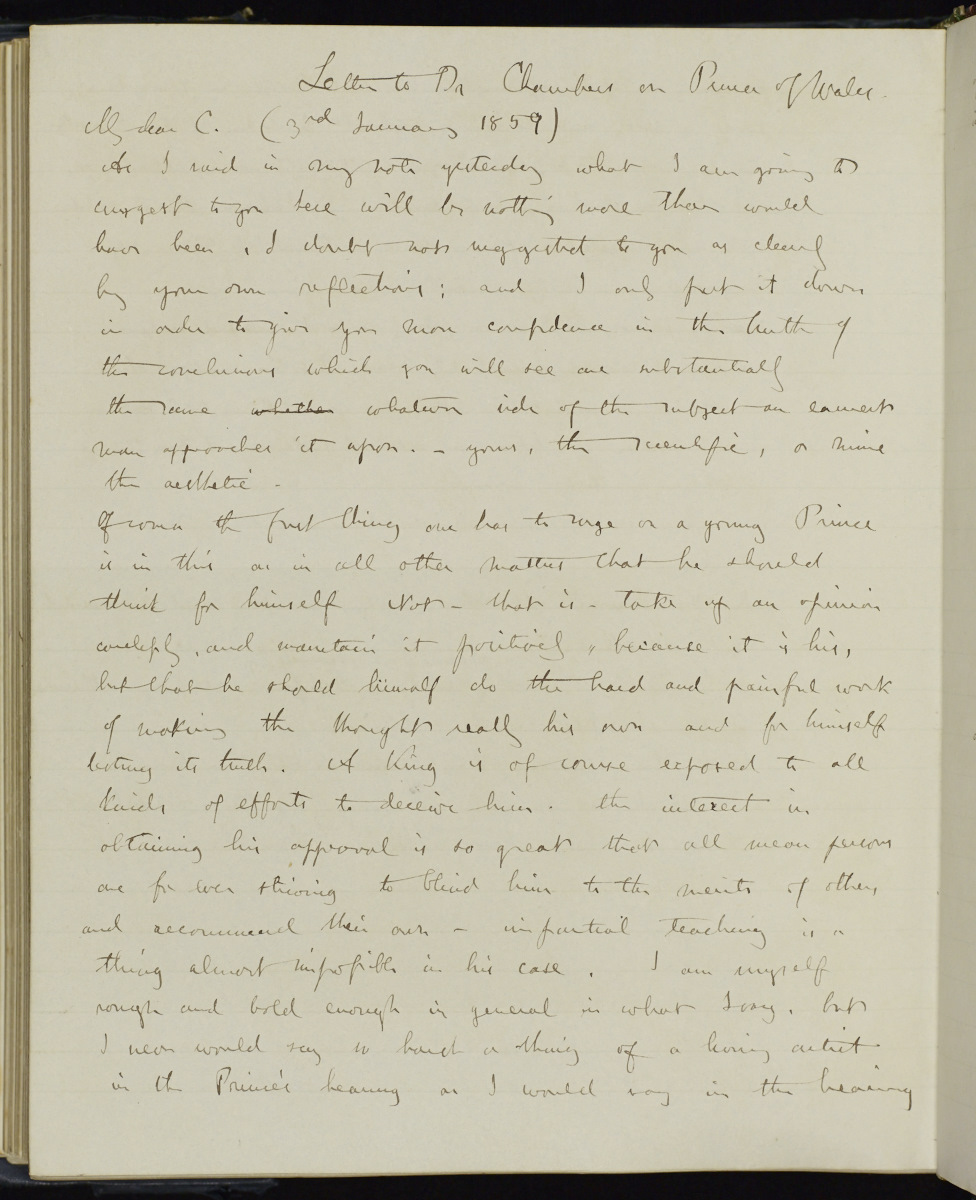 Letter to Dr Chambers on Prince of Wales.
My dear C. (3rd January 1859)
As I said in my note yesterday what I am going to
suggest to you here will be nothing more than would
have been, I doubt not suggested to you as clearly
by your own reflections; and I only put it down
in order to give you more confidence in the truth of
the conclusions which you will see are substantially
the same whether whatever side of the subject an earnest
man approaches it upon. - yours, the scientific, or mine
the aesthetic -
Of course the first thing one has to urge on a young Prince
is in this as in all other matters that he should
think for himself Not - that is - take up an opinion
carelessly, and maintain it positively, because it is his,
but that he should himself do the hard and painful work
of making the thought really his own and for himself
testing its truth. A King is of course exposed to all
kinds of efforts to deceive him. the interest in
obtaining his approval is so great that all mean persons
are for ever striving to blind him to the merits of others
and recommend their own - impartial teaching is a
thing almost impossible in his case. I am myself
rough and bold enough in general in what I say, but
I never would say so harsh a thing of a living artist
in the Prince's hearing as I would say in the hearing